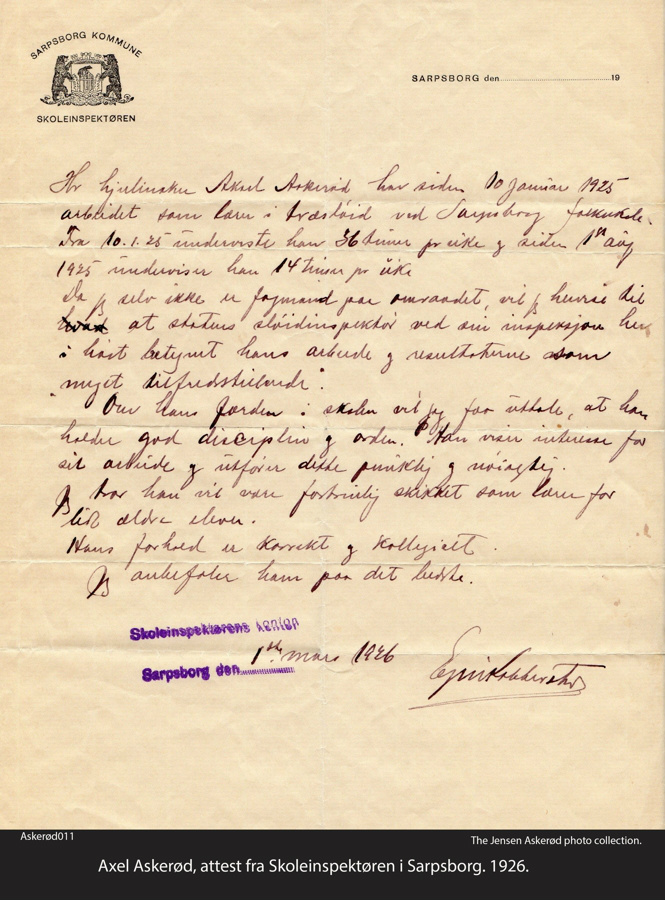 SARPSBORG KOMMUNE
SKOLEINSPEKTØREN
SARPSBORG den 19
Hr hjulmaker Aksel Askerød har siden 10 januar 1925
arbeidet som lærer i træsløid ved Sarpsborg folkeskole.
Fra 10.1.25 underviste han 36 timer pr uke og siden 1st aug
1925 underviser han 14 timer pr uke
Da jeg selv ikke er fagmand paa omraadet, vil jeg henvise til
at statens sløidinspektør ved sin inspeksjon her
i høst betegnet hans arbeide og resultaterne som
"meget tilfredstillende".
Over hans færden i skolen vil jeg faa uttale, at han
holder god disciplin og orden. Han viser interesse for
sit arbeide og utfører dette punktlig og nøiagtig.
Jeg tror han vil være fortrinlig skikket som lærer for
litt ældre elever.
Hans forhold er korrekt og kollegielt.
Jeg anbefaler ham paa det bedste.
Skoleinspektørens kontor
Sarpsborg den 1st mars 1926
Askerød011
The Jensen Askerød photo collection.
Axel Askerød, attest fra Skoleinspektøren i Sarpsborg. 1926.